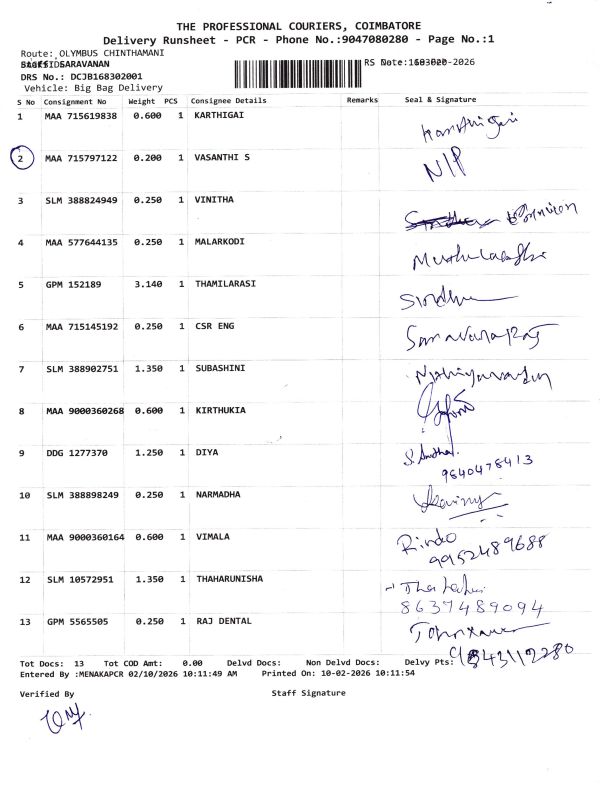 THE PROFESSIONAL COURIERS, COIMBATORE
Delivery Runsheet - PCR - Phone No.:9047080280 - Page No.:1
Route: OLYMBUS CHINTHAMANI
SARAVANAN
DRS No.: DCJB168302001
Vehicle: Big Bag Delivery
S No Consignment No Weight PCS Consignee Details Remarks Seal & Signature
1 MAA 715619838 0.600 1 KARTHIGAI
2 MAA 715797122 0.200 1 VASANTHI S N/P
3 SLM 388824949 0.250 1 VINITHA
4 MAA 577644135 0.250 1 MALARKODI
5 GPM 152189 3.140 1 THAMILARASI
6 MAA 715145192 0.250 1 CSR ENG
7 SLM 388902751 1.350 1 SUBASHINI
8 MAA 9000360268 0.600 1 KIRTHUKIA
9 DDG 1277370 1.250 1 DIYA
9840478413
10 SLM 388898249 0.250 1 NARMADHA
11 MAA 9000360164 0.600 1 VIMALA Rindo
9952489688
12 SLM 10572951 1.350 1 THAHARUNISHA
8637489094
13 GPM 5565505 0.250 1 RAJ DENTAL
9843112280
Tot Docs: 13 Tot COD Amt: 0.00 Delvd Docs: Non Delvd Docs: Delvy Pts:
Entered By :MENAKAPCR 02/10/2026 10:11:49 AM Printed On: 10-02-2026 10:11:54
Verified By Staff Signature